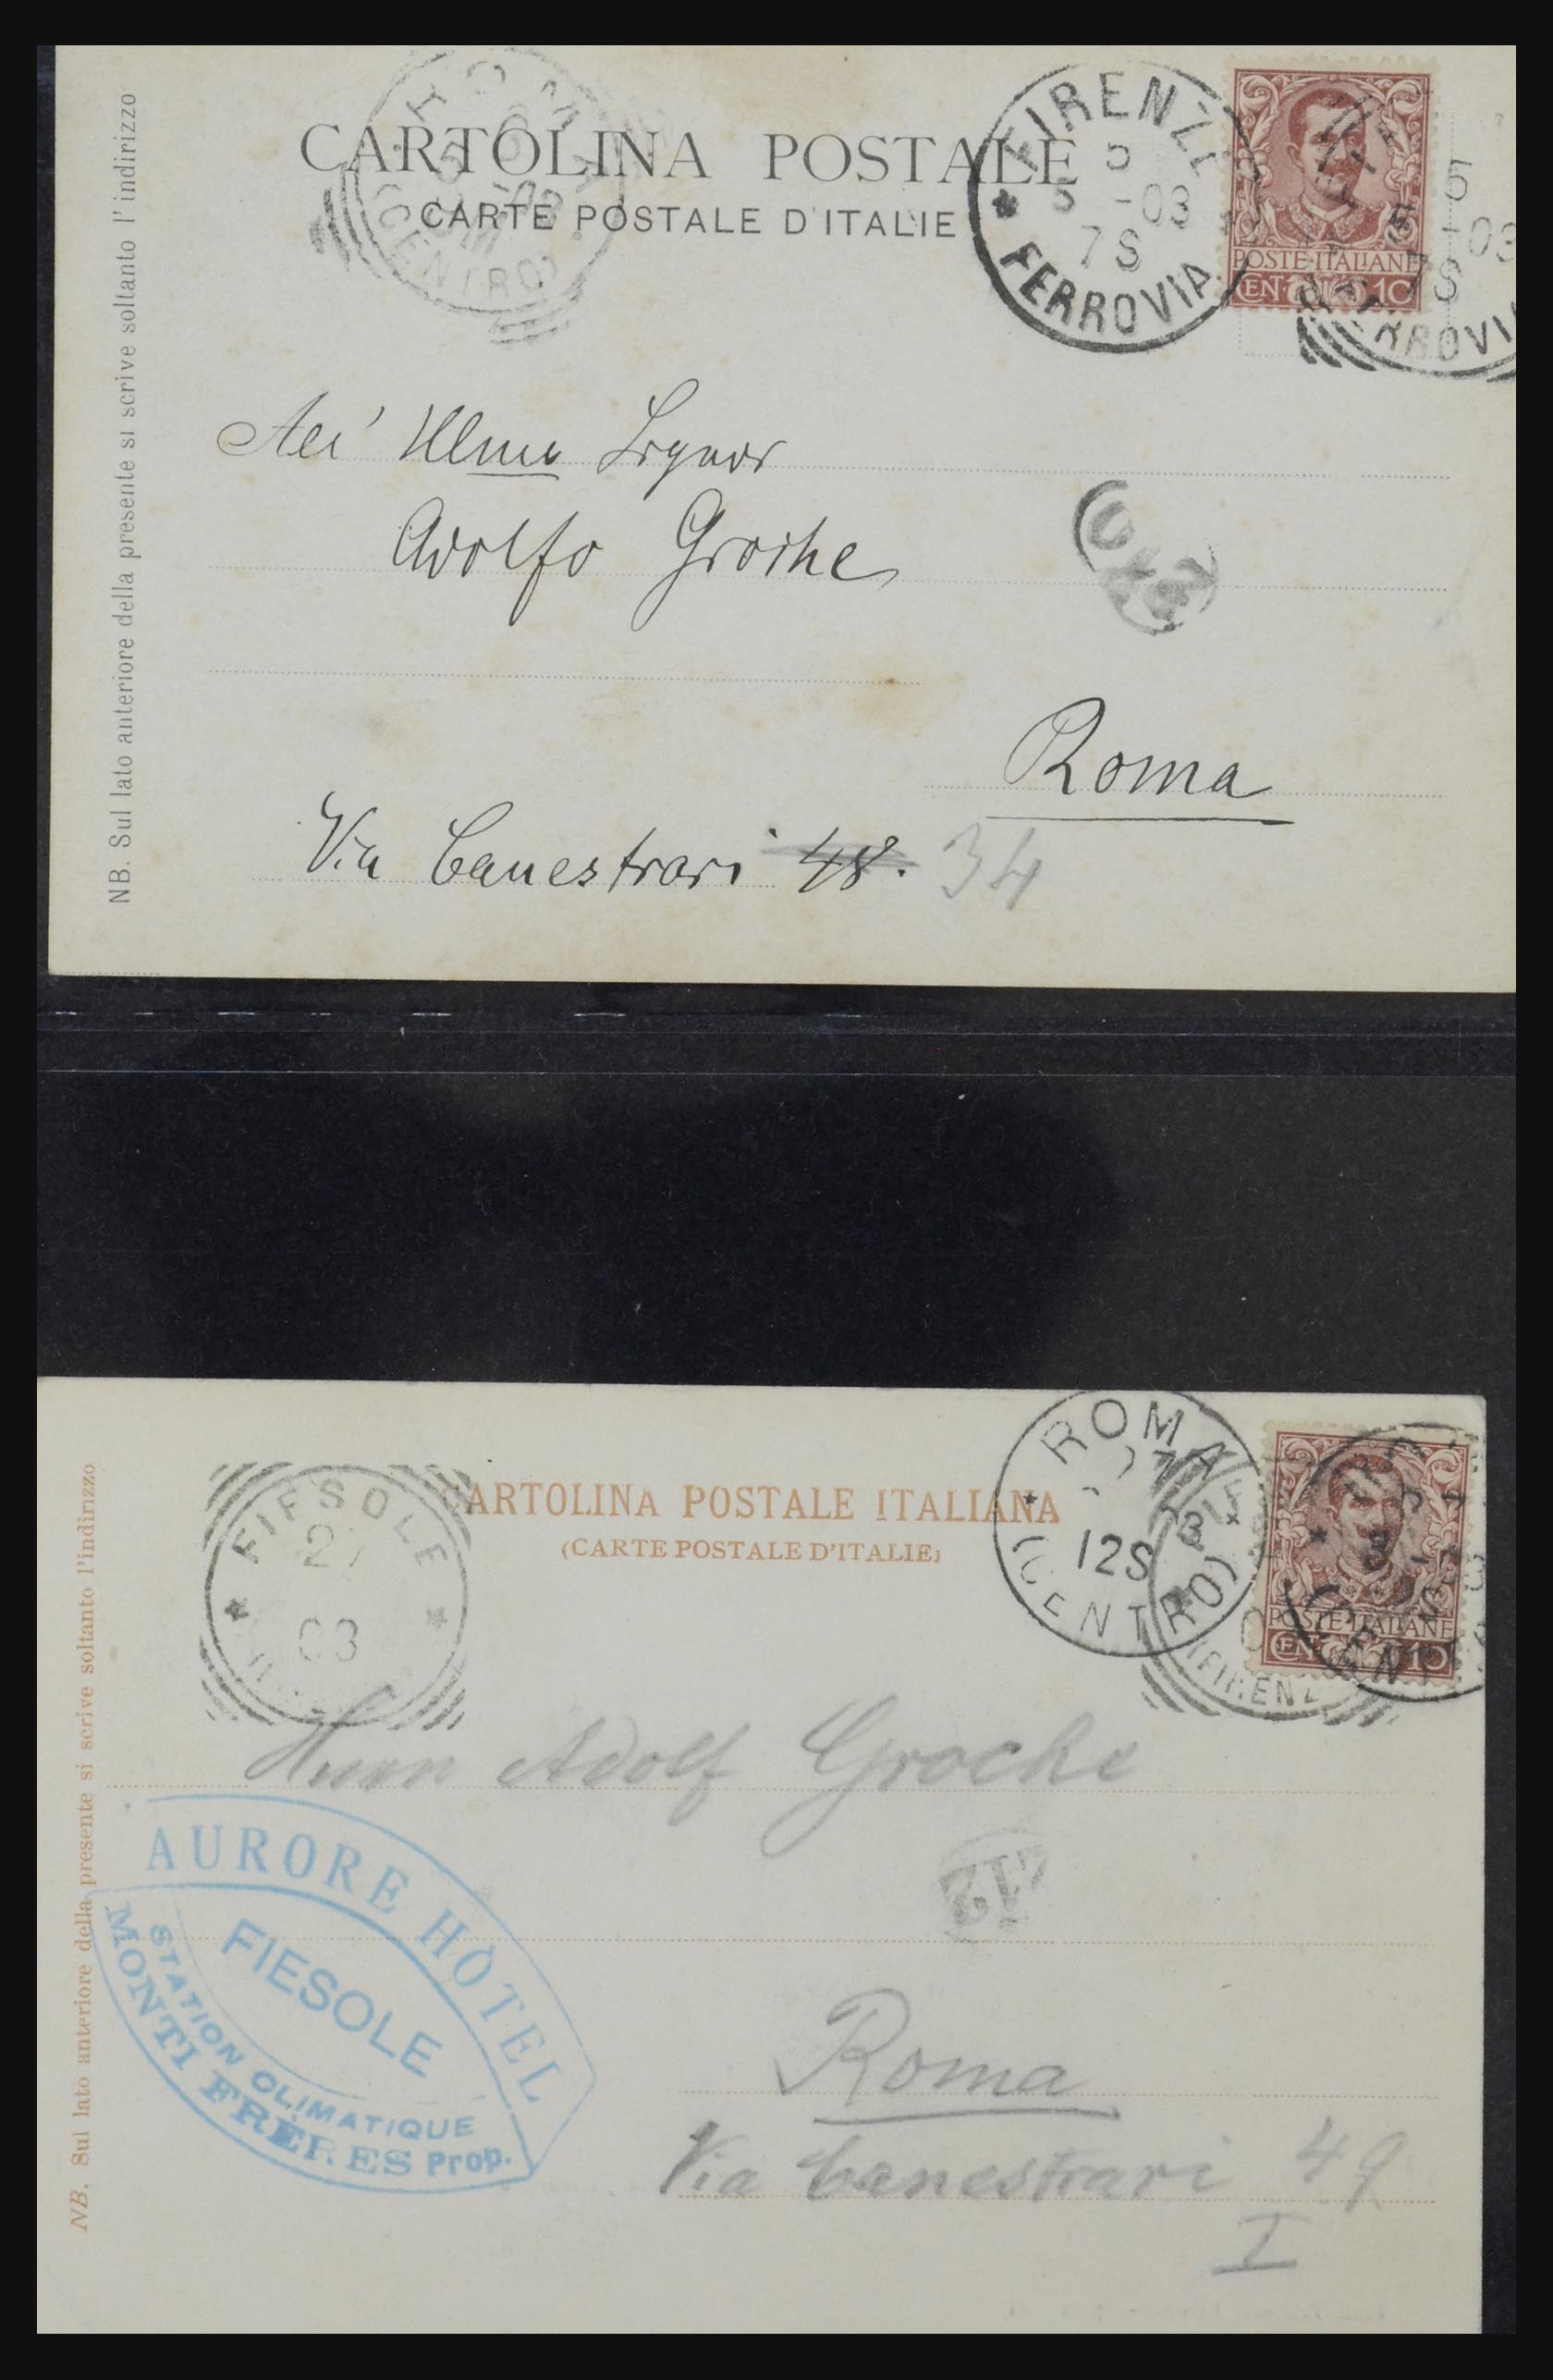 CARTOLINA POSTALE
CARTE POSTALE D'ITALIE
NB. Sul lato anteriore della presente si scrive soltanto l'indirizzo
ROMA
(CENTRO)
FIRENZE
5
5 -03
7S
FERROVIA
POSTE ITALIANE
CEN. 10
5
-03
7S
FERROVIA
Signor
Adolfo Groche
Roma
Via Canestrari 48. 34
CARTOLINA POSTALE ITALIANA
(CARTE POSTALE D'ITALIE)
NB. Sul lato anteriore della presente si scrive soltanto l'indirizzo
FIESOLE
03
ROMA
12S
(CENTRO)
(FIRENZ
POSTE ITALIANE
CEN. 10
Herrn Adolf Groche
212
AURORE HÒTEL
FIESOLE
STATION CLIMATIQUE
MONTI FRÈRES Prop.
Roma
Via Canestrari 49
I